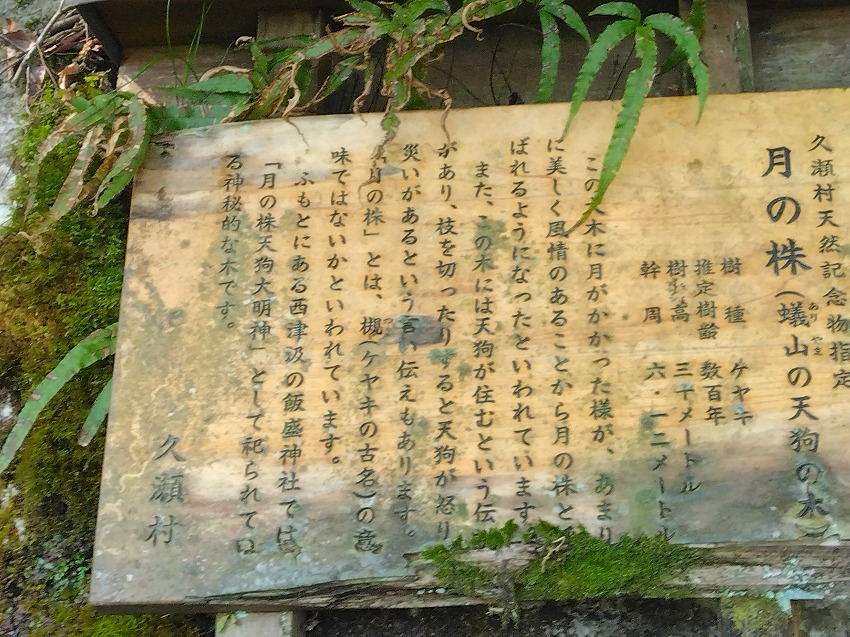 久瀬村天然記念物指定
月の株(蟻山の天狗の木)
あり やま
樹種 ケヤキ
推定樹齢 数百年
樹高 三十メートル
幹周 六・一二メートル
この大木に月がかかった様が、あまり
に美しく風情のあることから月の株と
ばれるようになったといわれています
また、この木には天狗が住むという伝
があり、枝を切ったりすると天狗が怒り
災いがあるという言い伝えもあります。
「月の株」とは、槻(ケヤキの古名)の意
つき
味ではないかといわれています。
ふもとにある西津汲の飯盛神社では
「月の株天狗大明神」として祀られてい
る神秘的な木です。
久瀬村